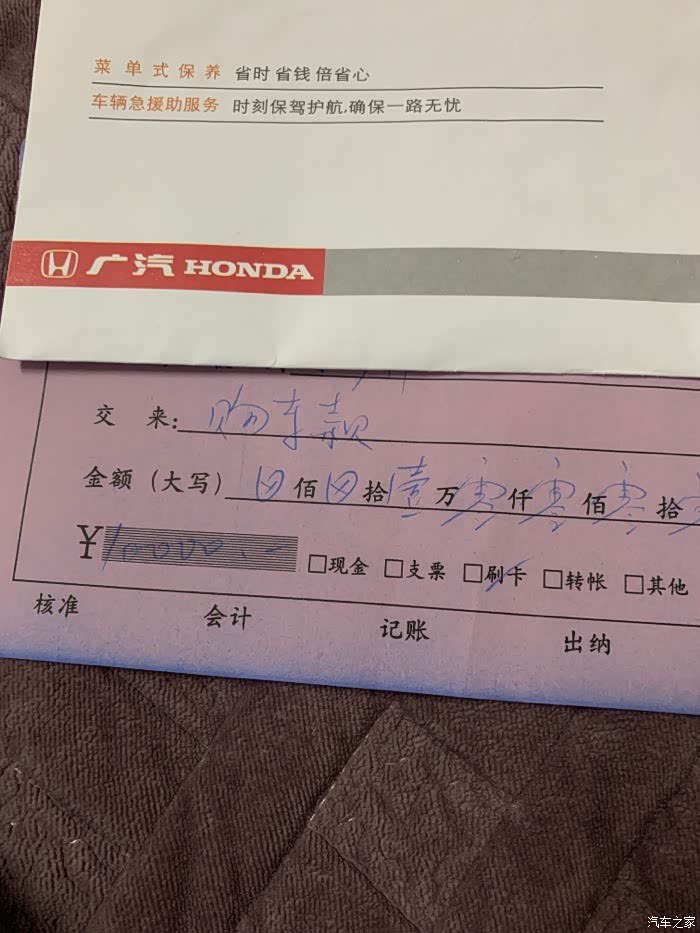 菜单式保养 省时 省钱 倍省心
车辆急援助服务 时刻保驾护航,确保一路无忧
广汽 HONDA
交 来: 购车款
金额（大写） 佰 拾壹万零仟零佰零拾
¥10000.-
□现金 □支票 □刷卡 □转帐 □其他
核准 会计 记账 出纳
汽车之家